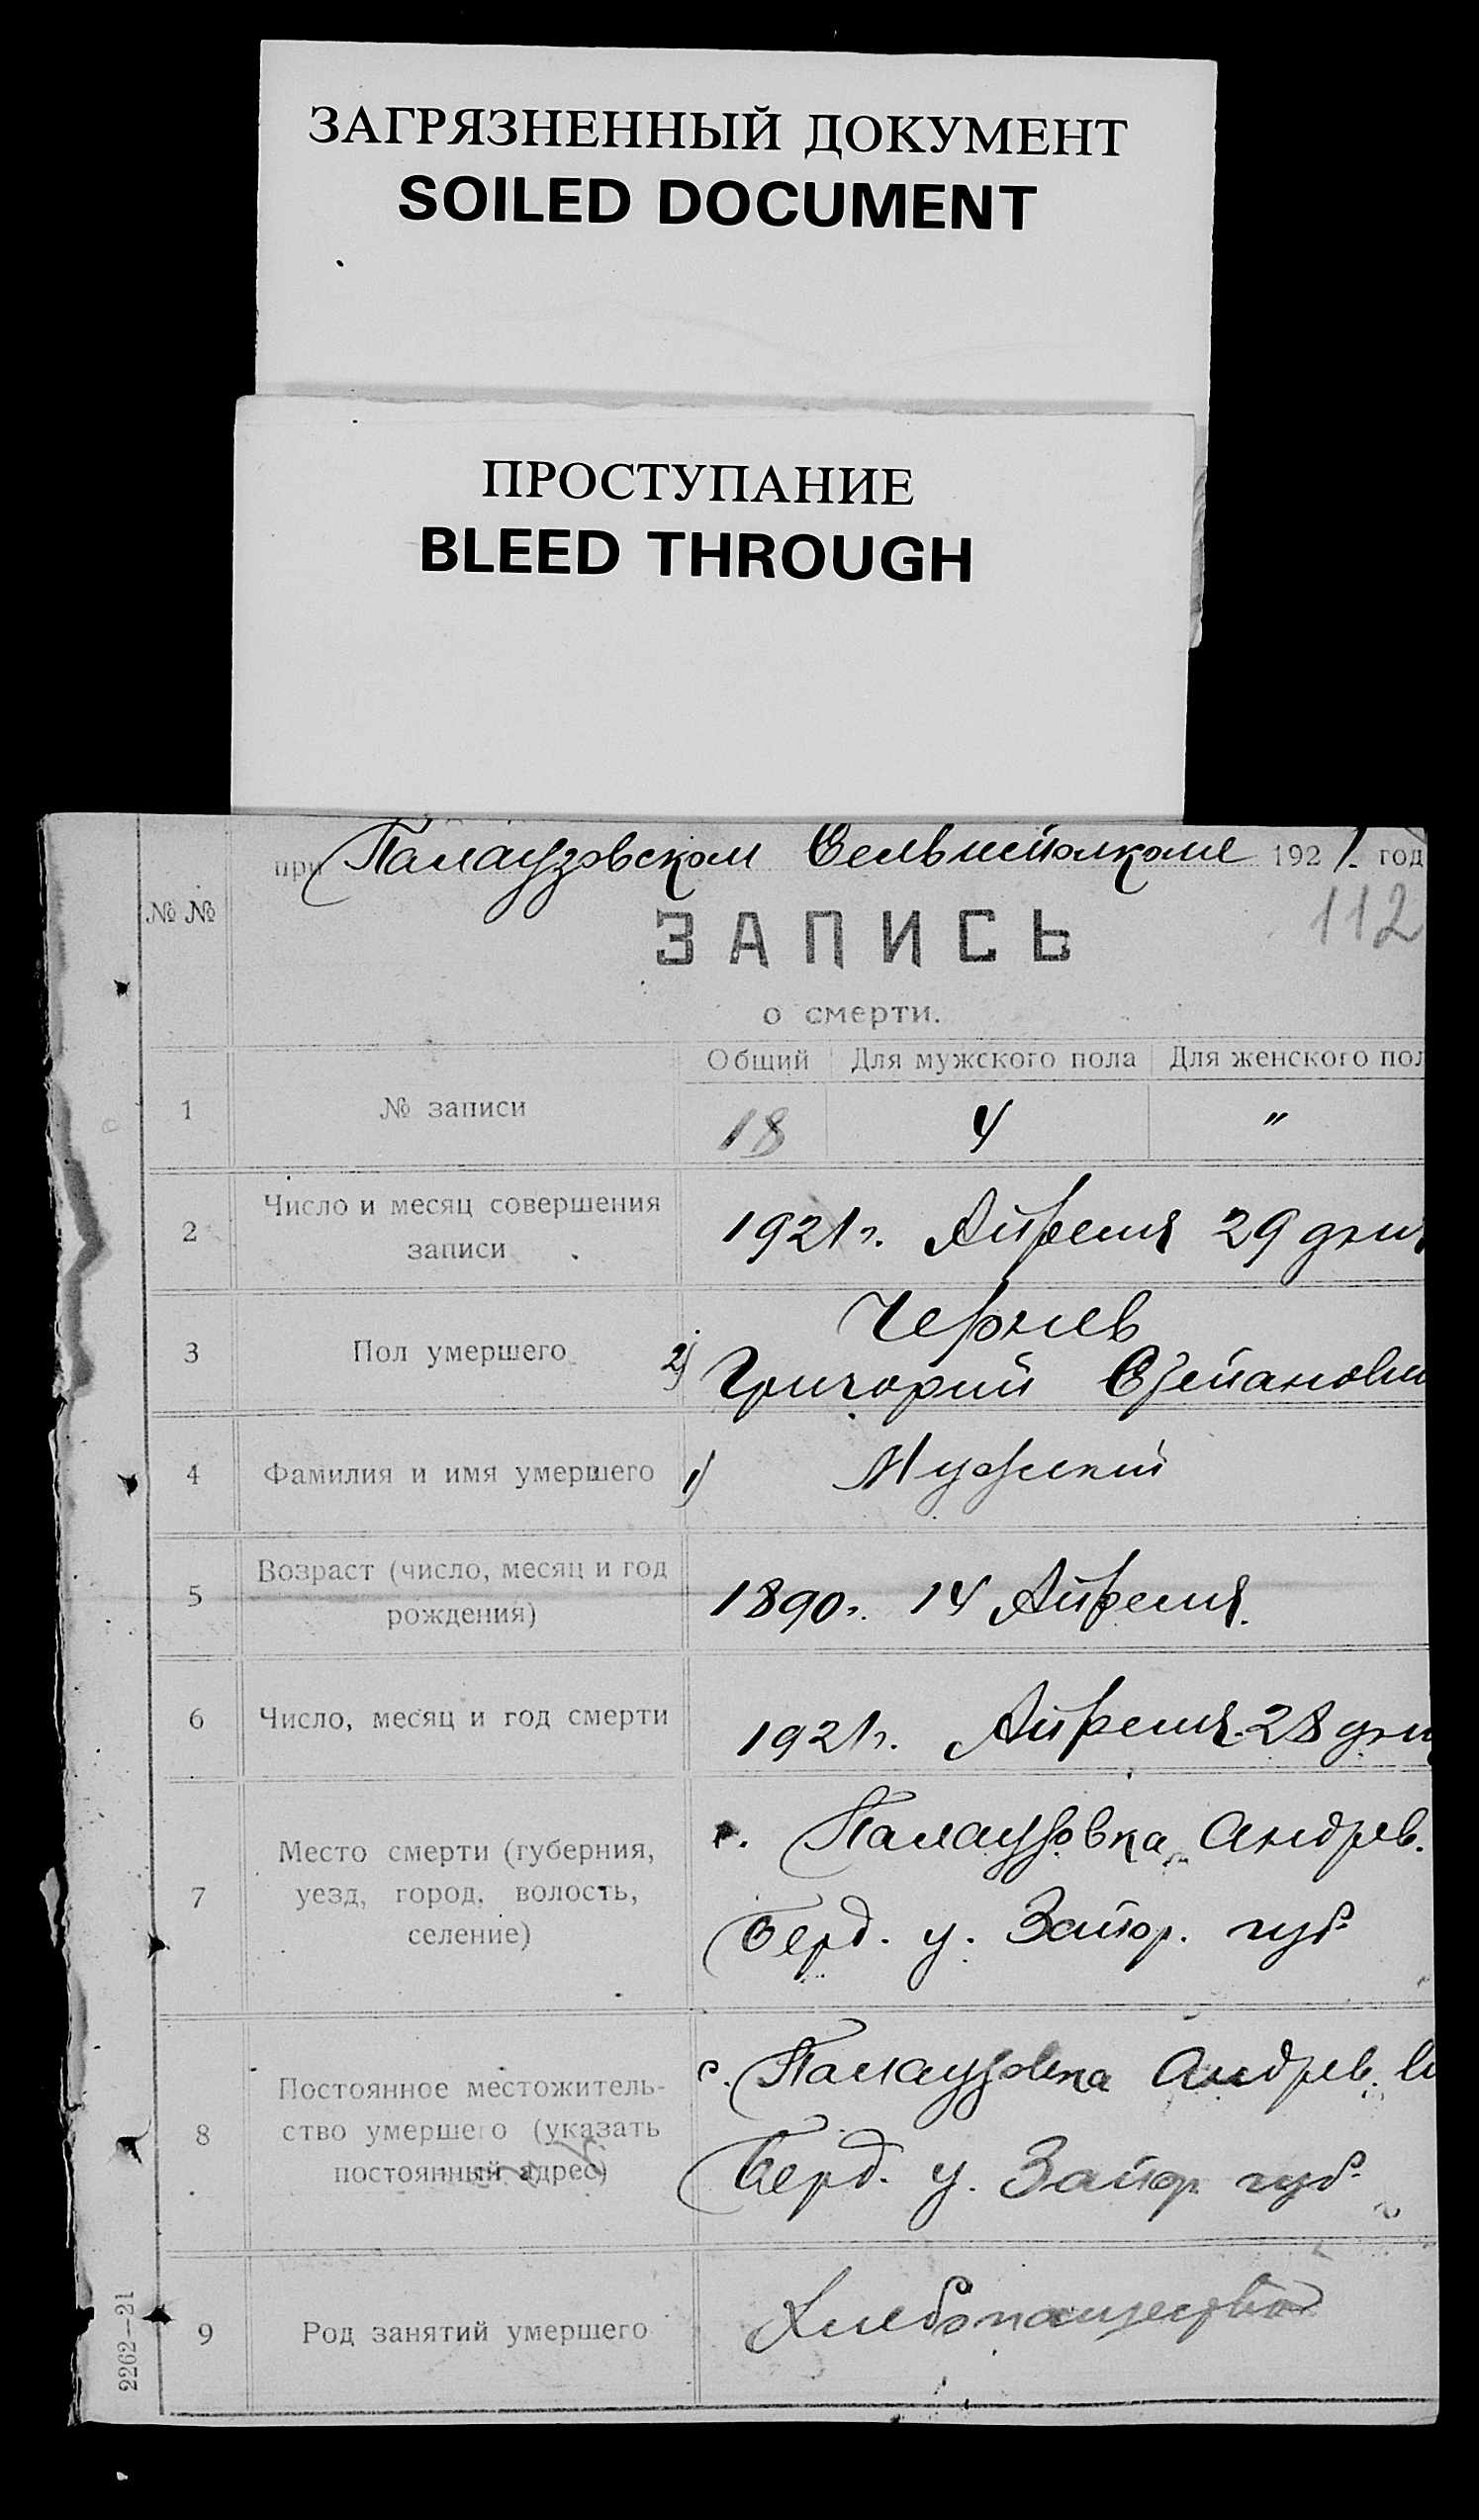 ЗАГРЯЗНЕННЫЙ ДОКУМЕНТ
SOILED DOCUMENT
ПРОСТУПАНИЕ
BLEED THROUGH
при Палаузовском Сельисполкоме 1921. год
№ №
112
ЗАПИСЬ
о смерти.
Общий Для мужского пола Для женского пол
1 № записи 18 4 "
2 Число и месяц совершения
записи 1921 г. Апреля 29 дня
3 Пол умершего 2) Чернев
Григорий Степанови
4 Фамилия и имя умершего 1) Мужской
5 Возраст (число, месяц и год
рождения) 1890 г. 14 Апреля.
6 Число, месяц и год смерти 1921 г. Апреля 28 дня
7 Место смерти (губерния,
уезд, город, волость,
селение)
с. Палаузовка Андрев.
Берд. у. Запор. губ.
8 Постоянное местожитель-
ство умершего (указать
постоянный адрес)
с. Палаузовка Андрев. в
Берд. у. Запор губ.
9 Род занятий умершего Хлебопашество
2262—21